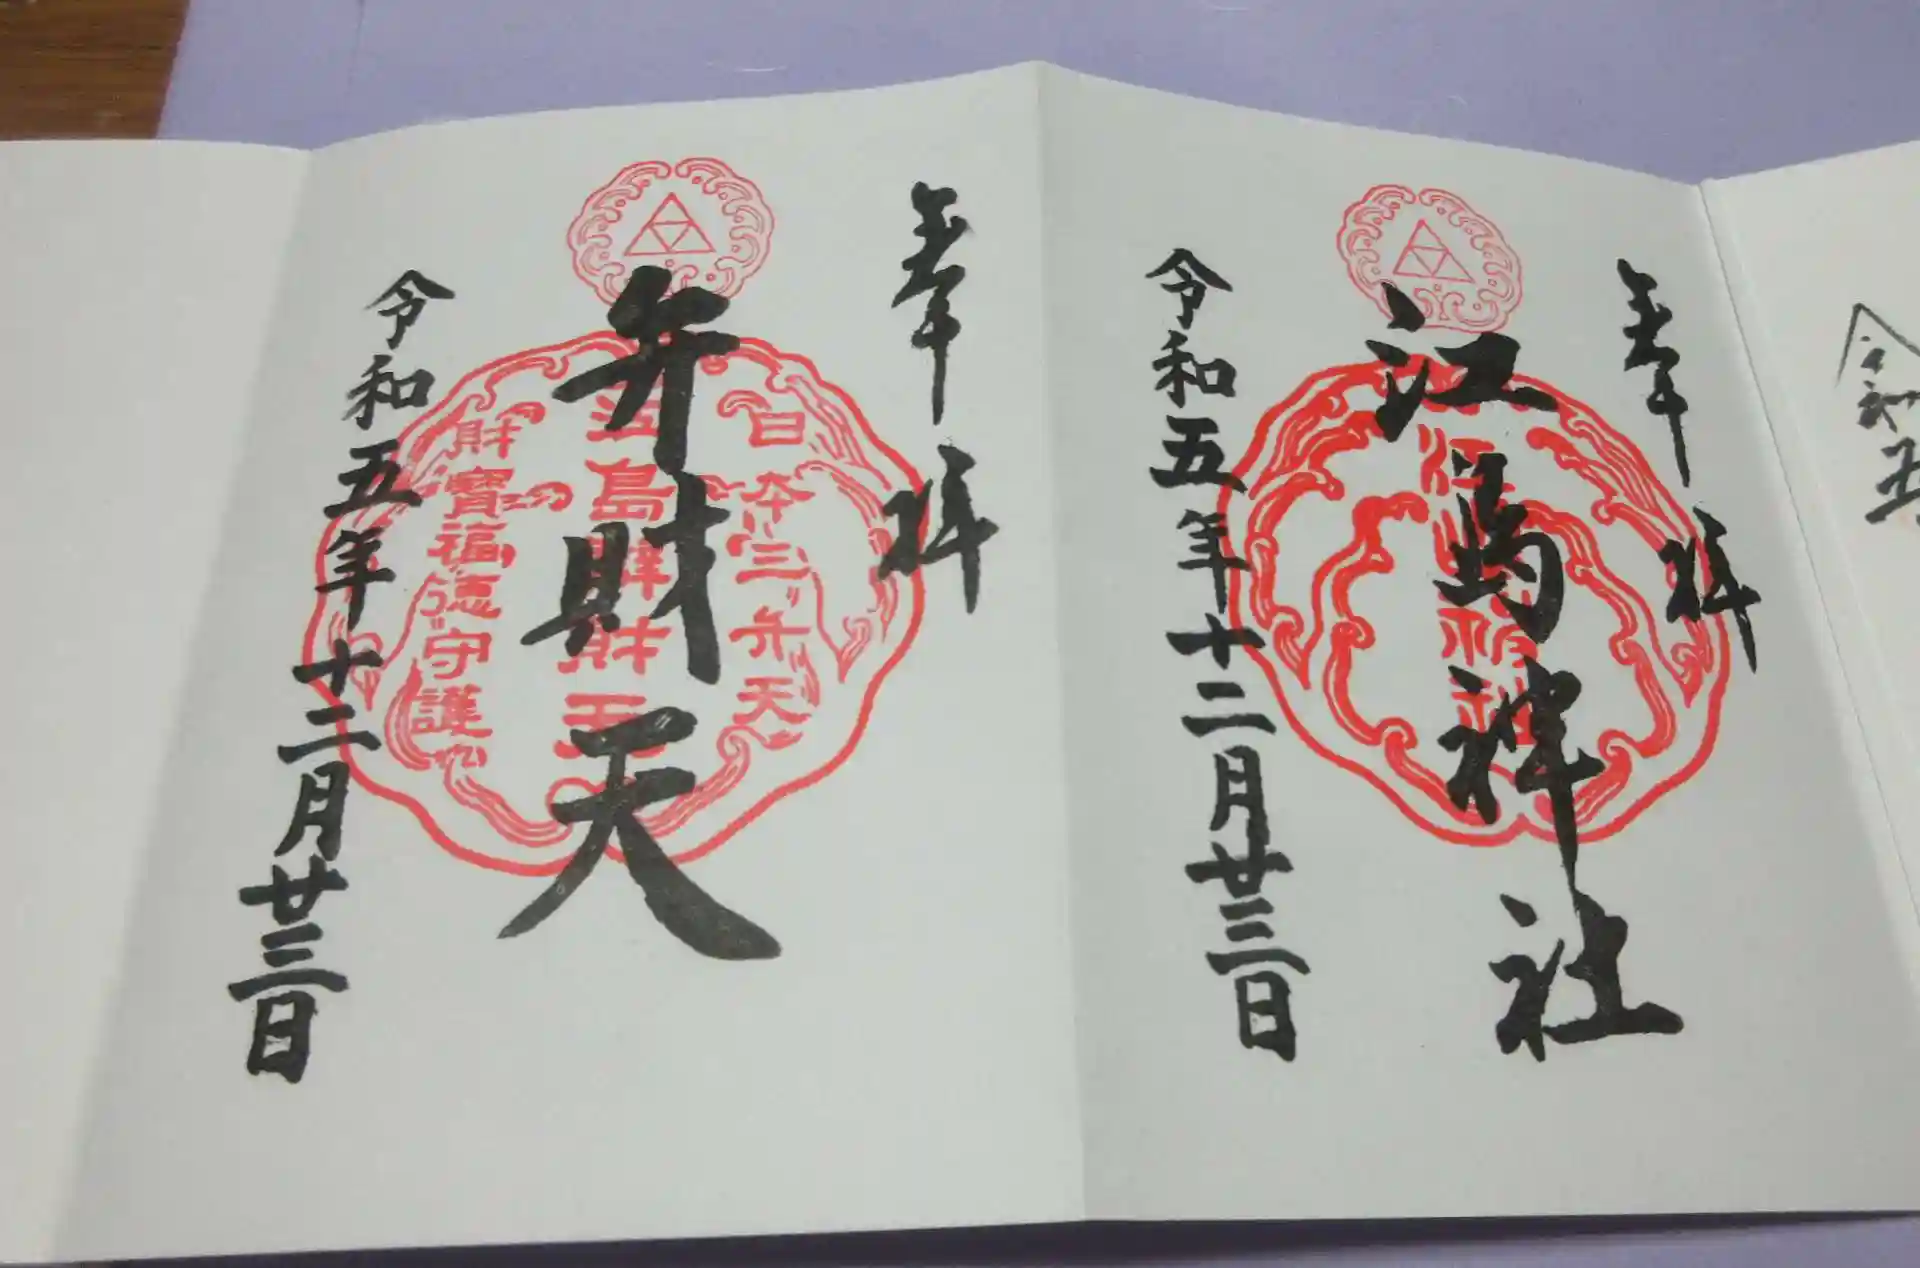 奉拝
江島神社
令和五年十二月廿三日
奉拝
弁財天
令和五年十二月廿三日
日本三弁天
財寶福徳守護
令和五